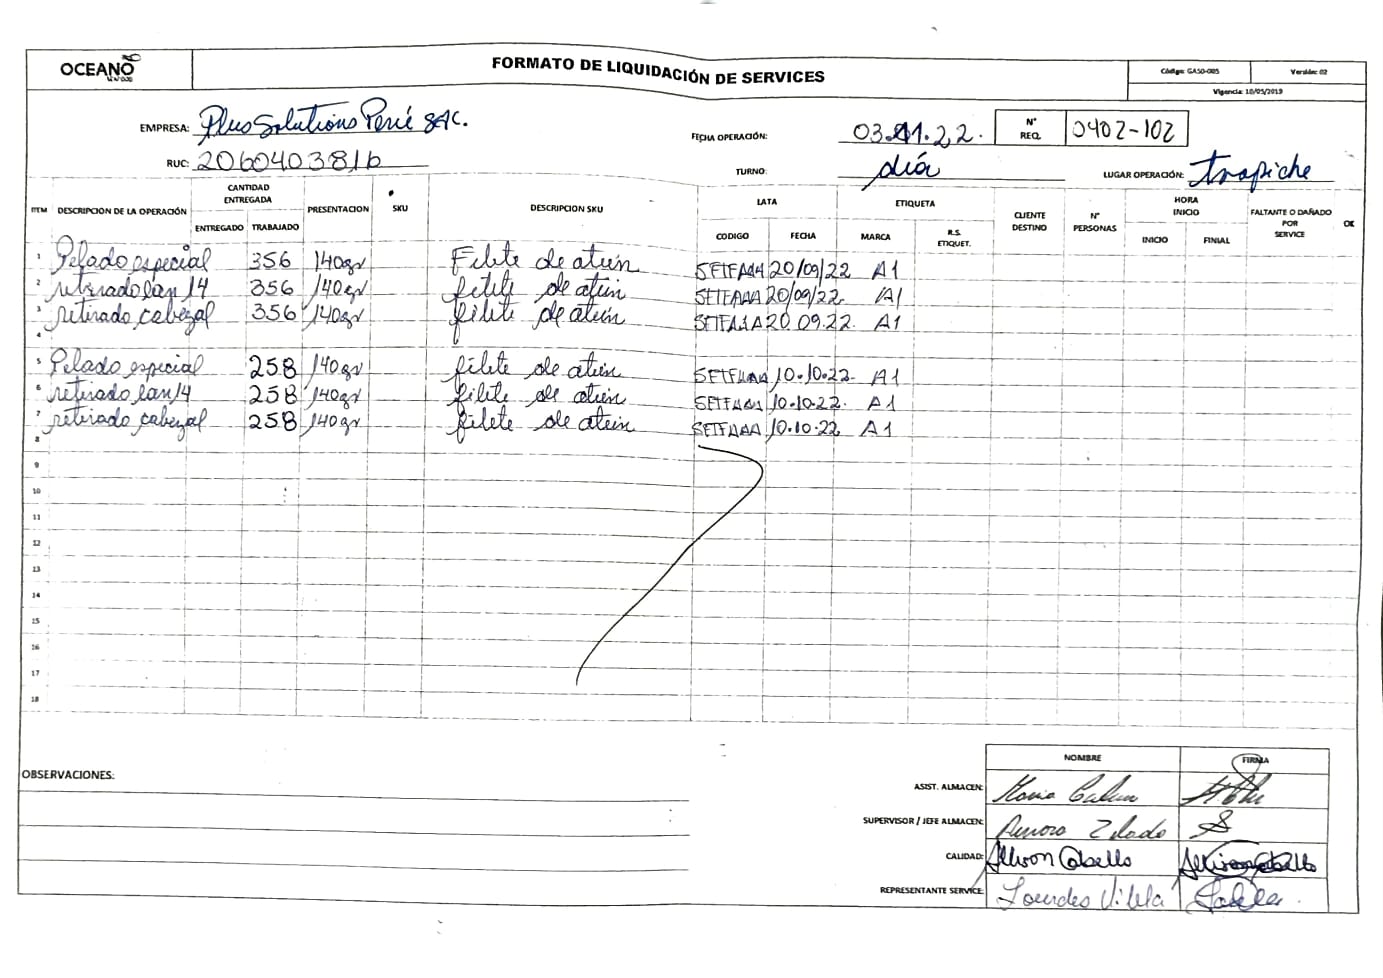 OCEANO
FORMATO DE LIQUIDACIÓN DE SERVICES
Código: GASO-005 Versión: 02
Vigencia: 10/05/2019
EMPRESA: Plus Solutions Perú SAC.
FECHA OPERACIÓN: 03.11.22.
N° REQ. 0402-102
RUC: 2060403816
TURNO: día
LUGAR OPERACIÓN: trapiche
ITEM DESCRIPCION DE LA OPERACIÓN CANTIDAD ENTREGADA ENTREGADO TRABAJADO PRESENTACION SKU DESCRIPCION SKU LATA CODIGO FECHA ETIQUETA MARCA R.S. ETIQUET. CLIENTE DESTINO N° PERSONAS HORA INICIO INICIO FINIAL FALTANTE O DAÑADO POR SERVICE OK
1 Pelado especial 356 140gr Filete de atún 20/09/22 A1
2 retirado lan 14 356 140gr filete de atún 20/09/22 A1
3 retirado cabezal 356 140gr filete de atún 20 09.22. A1
4
5 Pelado especial 258 140gr filete de atún 10.10.22. A1
6 retirado lan/4 258 140gr filete de atún 10.10.22. A1
7 retirado cabezal 258 140gr filete de atún 10.10.22 A1
8
9
10
11
12
13
14
15
16
17
18
OBSERVACIONES:
NOMBRE FIRMA
ASIST. ALMACEN: Maria
SUPERVISOR / JEFE ALMACEN: Aurora
CALIDAD: Allison Cabello
REPRESENTANTE SERVICE: Lourdes Vilela